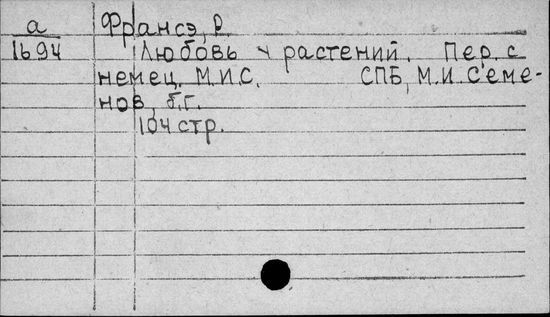 а Франсэ, Р
1694 Любовь у растений. Пер. с
немец. М.И.С. СПБ, М.И.Семе-
нов, б.г.
104 стр.